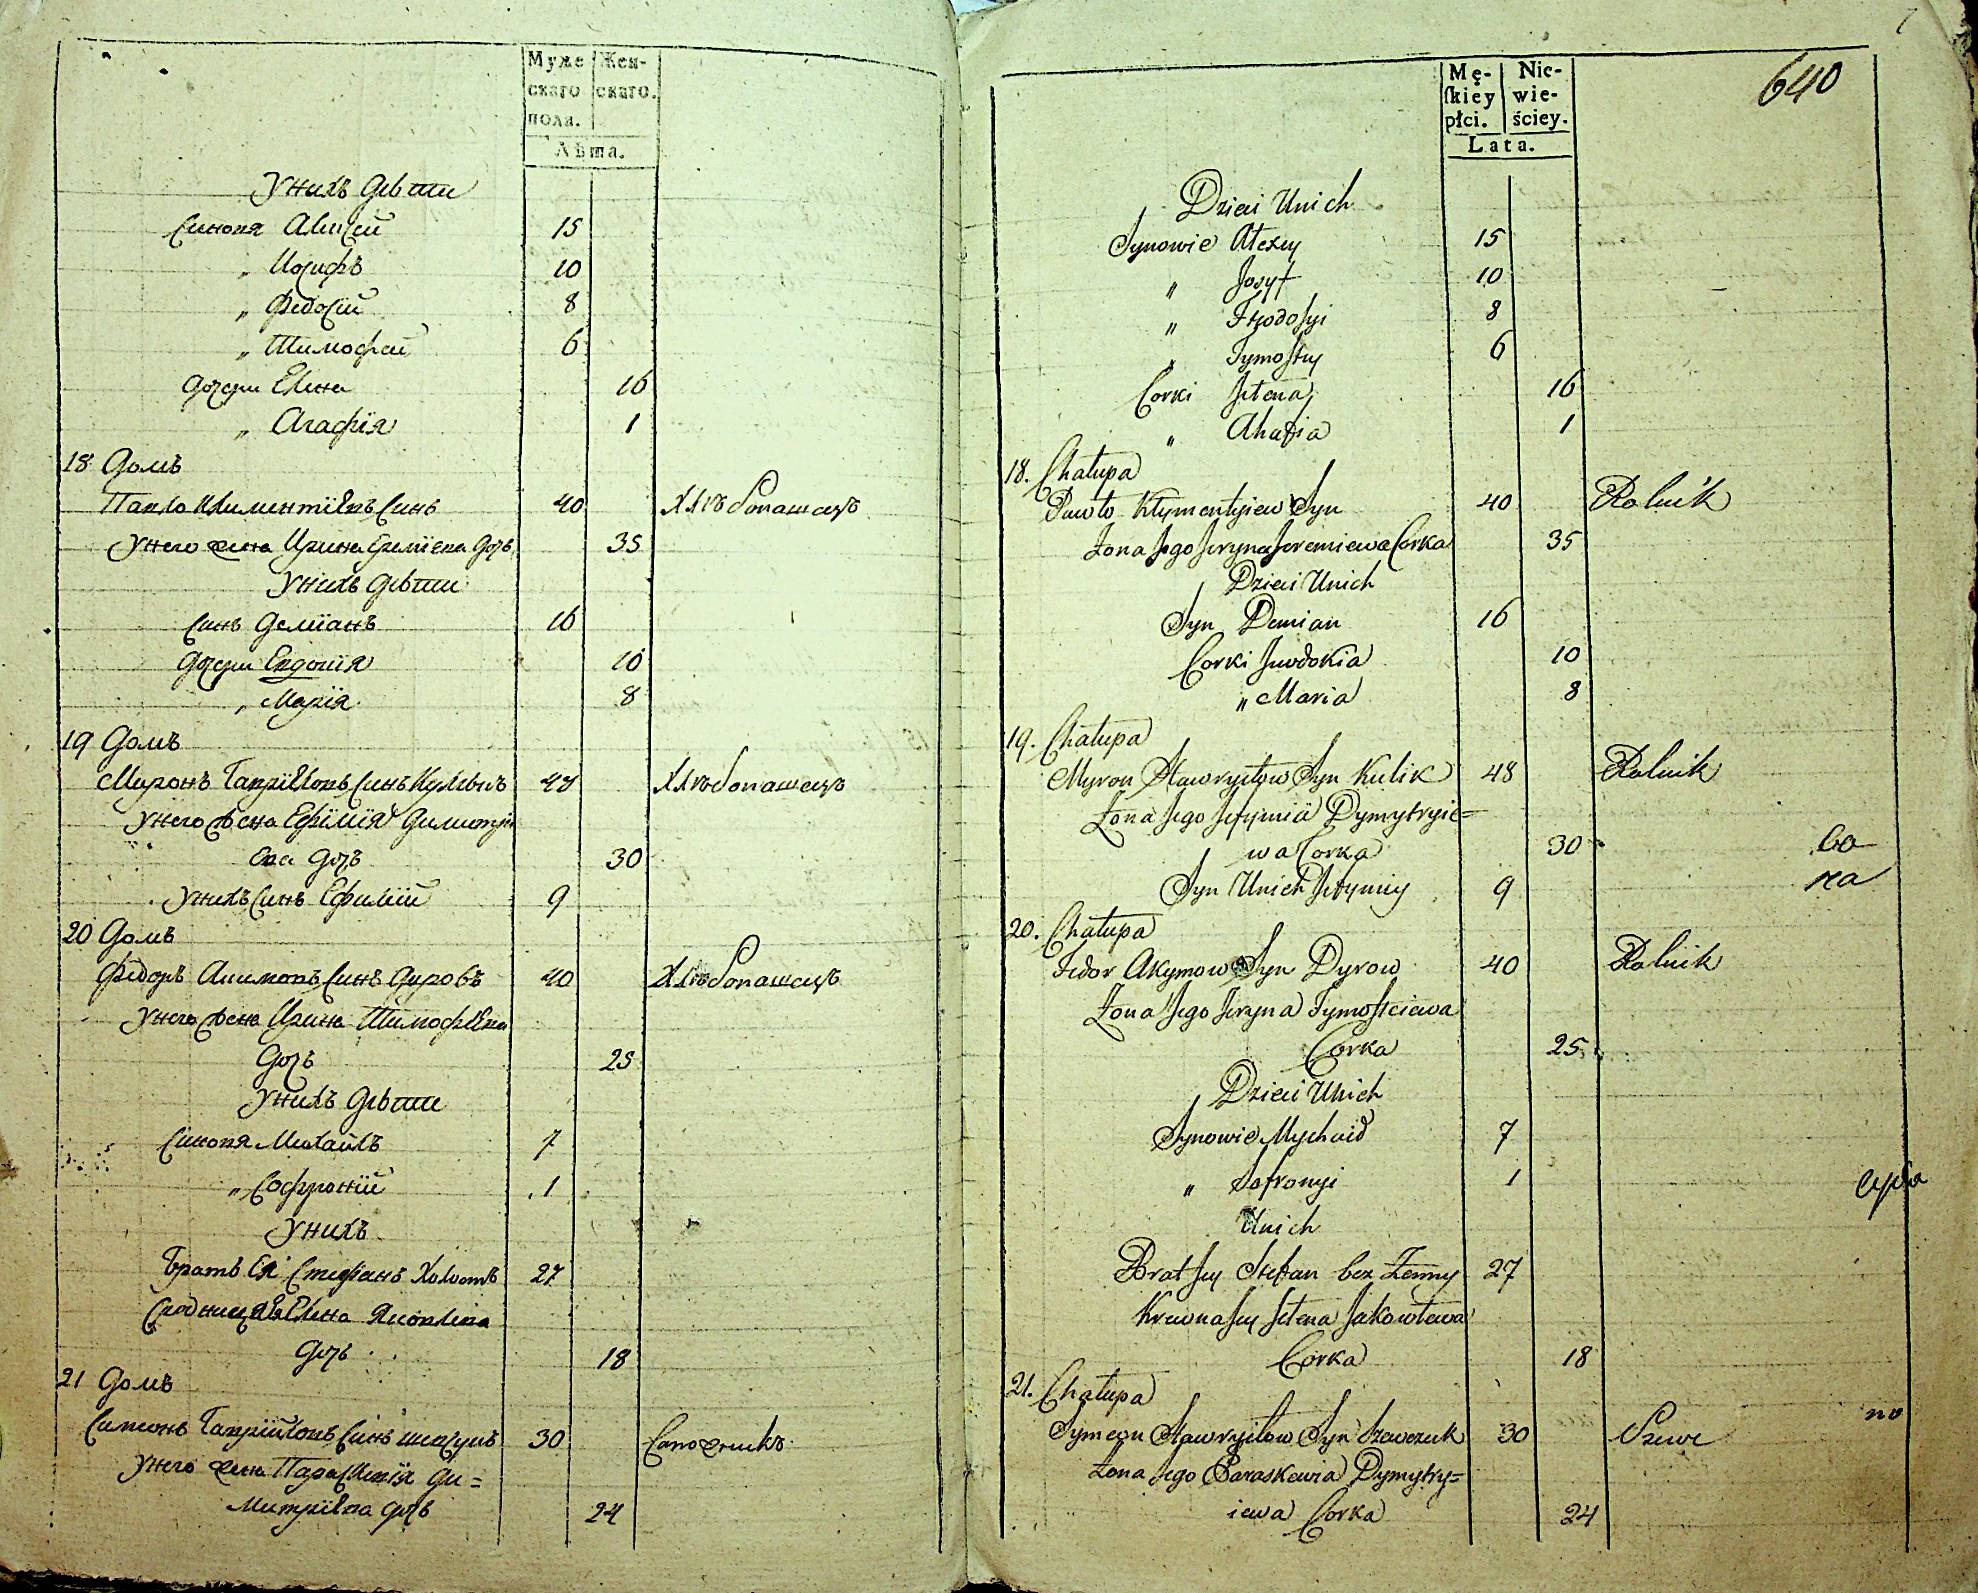 Муже Жен-
скаго скаго.
пола.
Лѣта.
Унихъ дѣти
Синовя Алексій 15
„ Иосифъ 10
„ Федосій 8
„ Тимофей 6
дочери Елена 16
„ Агафія 1
18 Домъ
Павло Климентіевъ Синъ 40 Хлѣбопашецъ
Унего жена Ирина Ереміева дочь 35
Унихъ дѣти
Синъ Деміанъ 16
дочери Евдокія 10
„ Марія 8
19 Домъ
Миронъ Гавриловъ Синъ Куликъ 48 Хлѣбопашецъ
Унего жена Ефімія Димитрі
ева дочь 30
Унихъ Синъ Ефимій 9
20 Домъ
Федоръ Акимовъ Синъ Дировъ 40 Хлѣбопашецъ
Унего жена Ирина Тимофѣева
Дочь 25
Унихъ дѣти
Синовя Михаилъ 7
„ Софроній 1
Унихъ
Братъ Ея Стефанъ Холостъ 27
Сродница Ея Елена Яковлева
дочь 18
21 Домъ
Симеонъ Гавріиловъ Синъ 30 Сапожникъ
Унего жена Параскевія Ди=
митріева дочь 24
640
Mę- Nie-
ſkiey wie-
płci. ściey.
Lata.
Dzieci Unich
Synowie Alexy 15
„ Josyf 10
„ Fteodosyi 8
„ Tymoftey 6
Corki Jełena 16
„ Ahafia 1
18. Chałupa
Pawło Kłymentyiew Syn 40 Rolnik
Żona Jego Jeryna Jeremiewa Corka 35
Dzieci Unich
Syn Demian 16
Corki Jewdokia 10
„ Maria 8
19. Chałupa
Myron Hawryiłow Syn Kulik 48 Rolnik
Żona Jego Jefymia Dymytryie=
wa Corka 30
Syn Unich Jefymiy 9
20. Chałupa
Fedor Akymow Syn Dyrow 40 Rolnik
Żona Jego Jeryna Tymofteiewa
Corka 25
Dzieci Unich
Synowie Mychaił 7
„ Sofronyi 1
Unich
Brat Jey Stefan bez Żenny 27
Krewna Jey Jełena Jakowlewa
Corka 18
21. Chałupa
Symeon Hawryiłow Syn Szewczuk 30 Szewc
Żona Jego Paraskewia Dymytry=
iewa Corka 24